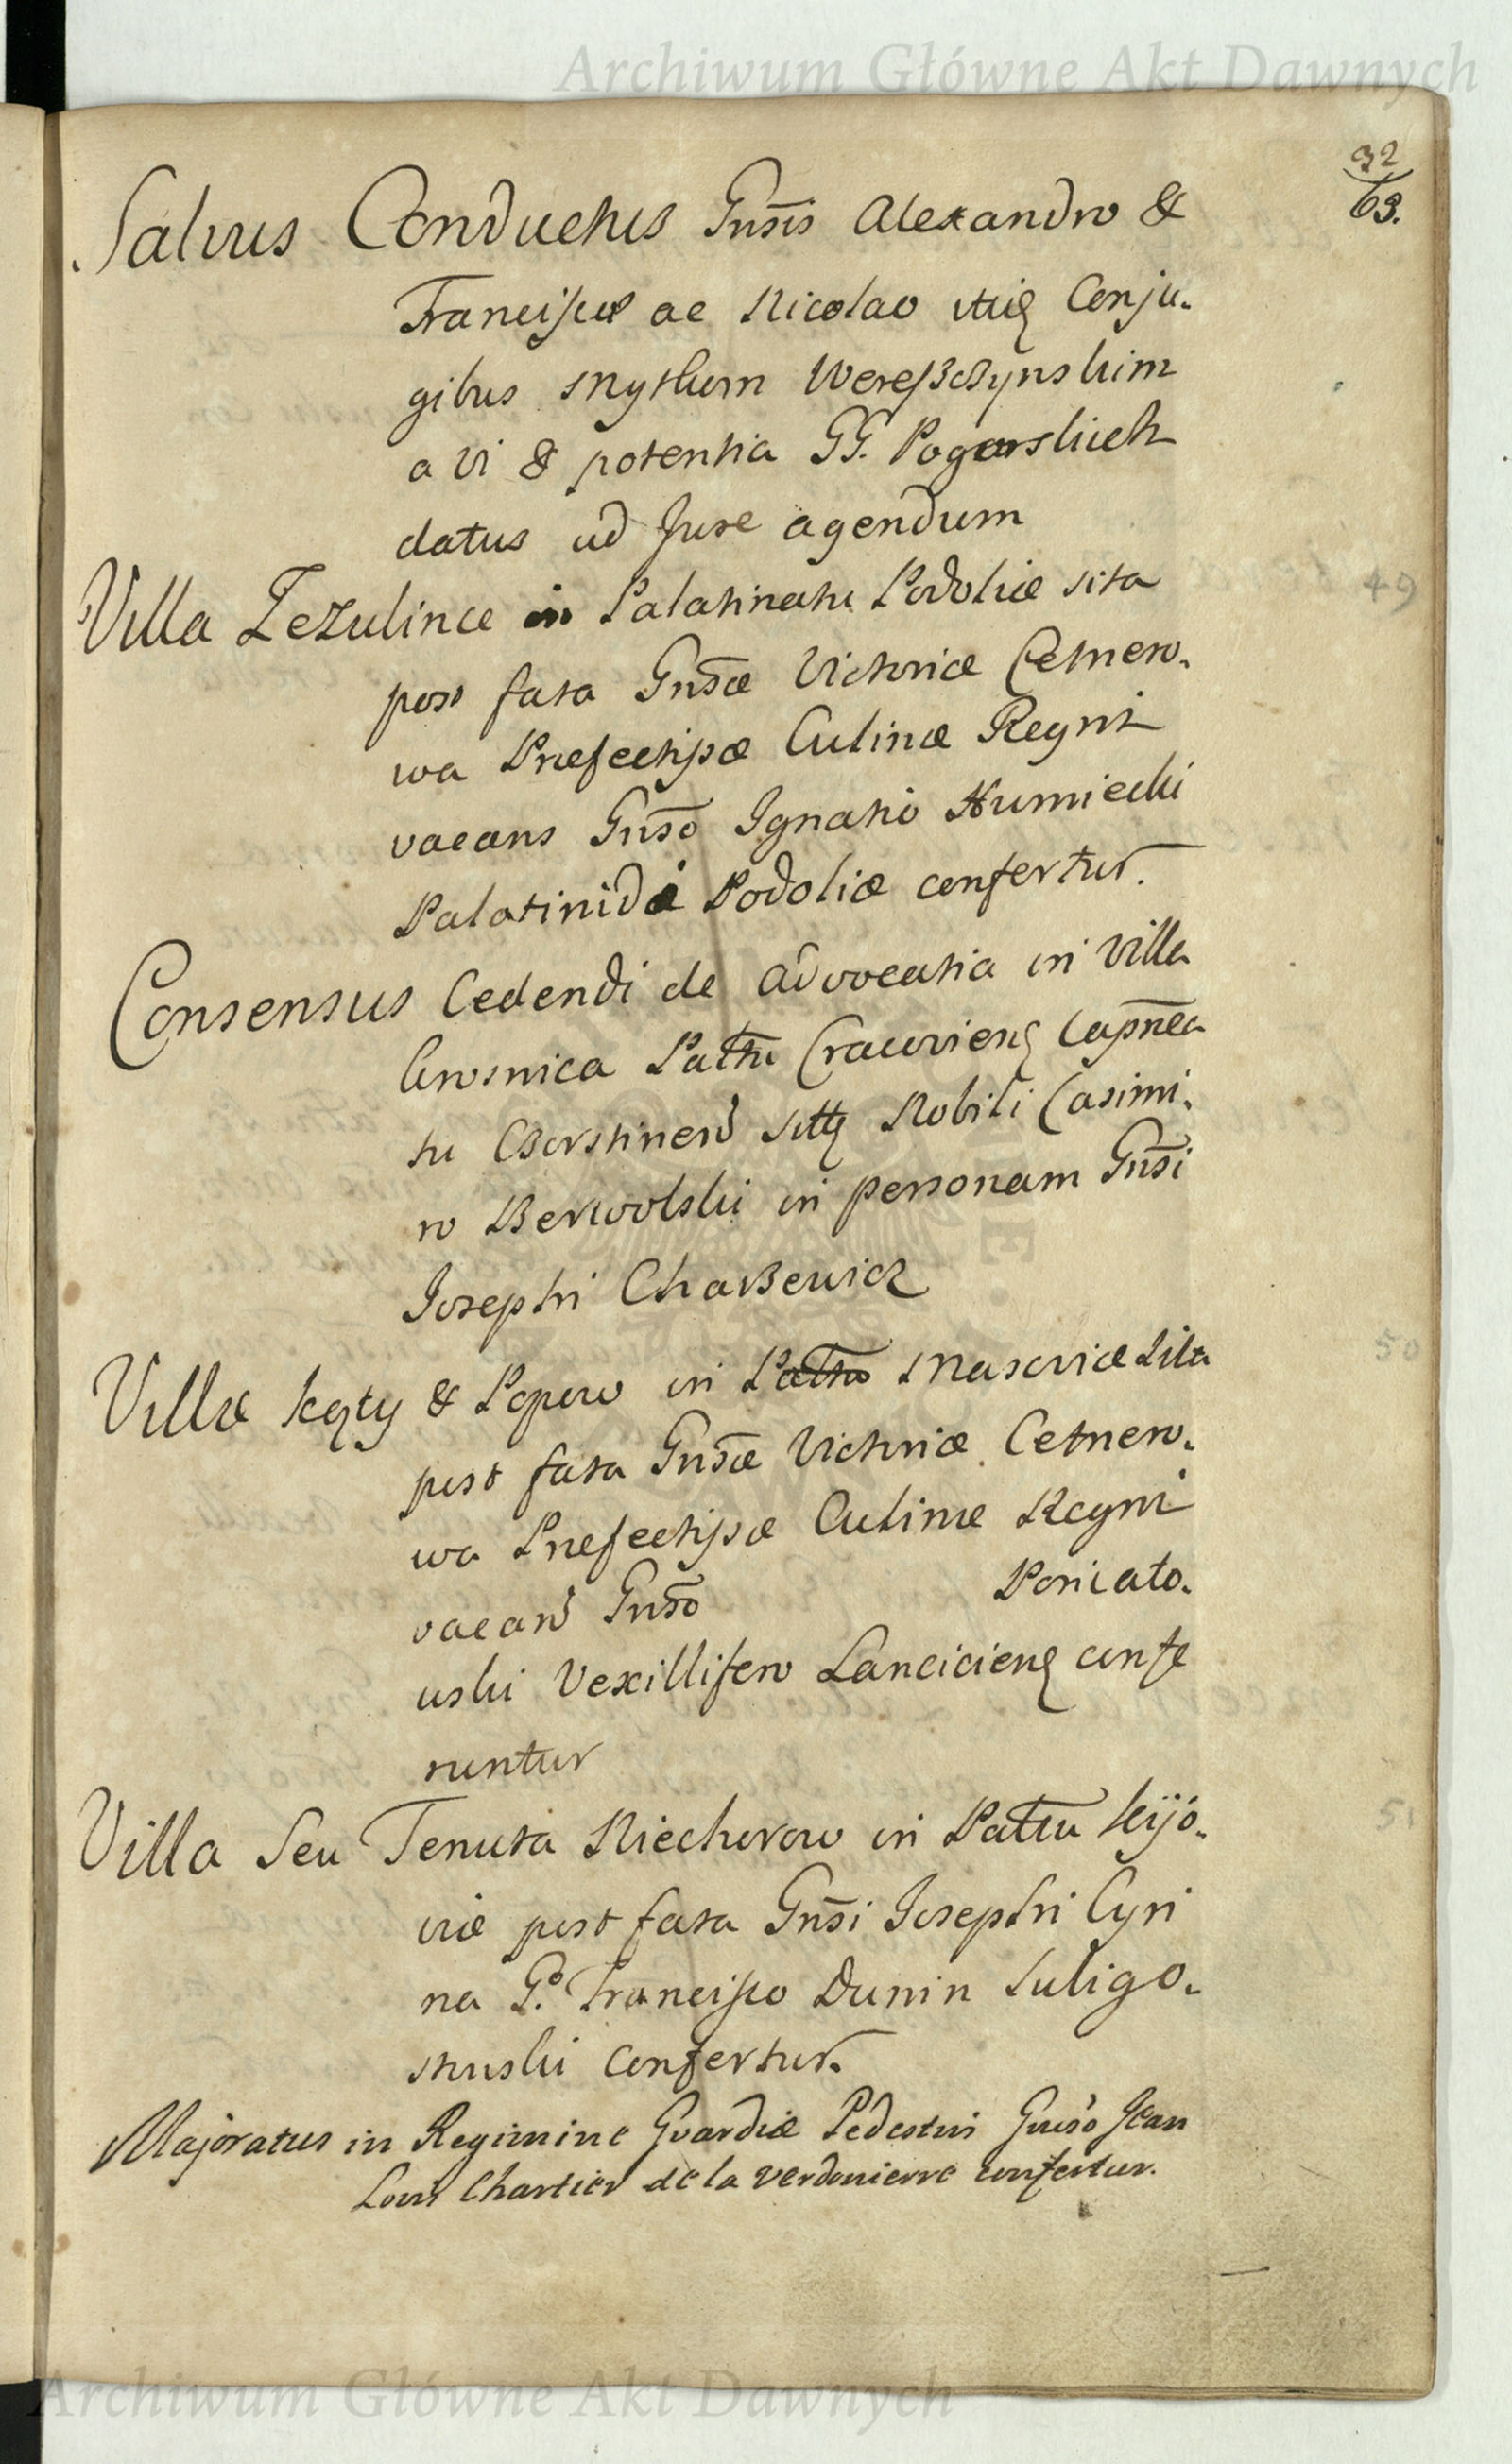 Archiwum Główne Akt Dawnych
92
63.
Salvus Conductus Gnsis Alexandro &
Franciscæ ac Nicolao utriq Conju-
gibus Wereszczynskim
a vi & potentia GG. Pogorskich
datus ad Jure agendum
49
Villa Zezulince in Palatinatu Podoliæ sita
post fata Gnsæ Victoriæ Cetnero-
wa Præfectissæ Culinæ Regni
vacans Gnso Ignatio Humiecki
Palatinidæ Podoliæ confertur.
Consensus Cedendi de advocatia in villa
Crosnica Pattu Cracovien Capnea
tu Czorstinen sittæ Nobili Casimi-
ro Berwolski in personam Gnsi
Josephi Chaszewicz
50
Villæ Kęty & Popowo in Pattu Masoviæ Sita
post fata Gnsæ Victoriæ Cetnero-
wa Præfectissæ Culinæ Regni
vacan Gnso Poniato-
wski Vexillifero Lancicien confe
runtur
51
Villa seu Tenuta Niechorow in Pattu Kijo-
viæ post fata Gnsi Josephi Cyri
na G. Francisco Dunin Suligo-
stowski confertur.
Majoratus in Regimine Guardiæ Pedestris Gnso Jean
Louis Chartier de la Verdonierre confertur.
Archiwum Główne Akt Dawnych